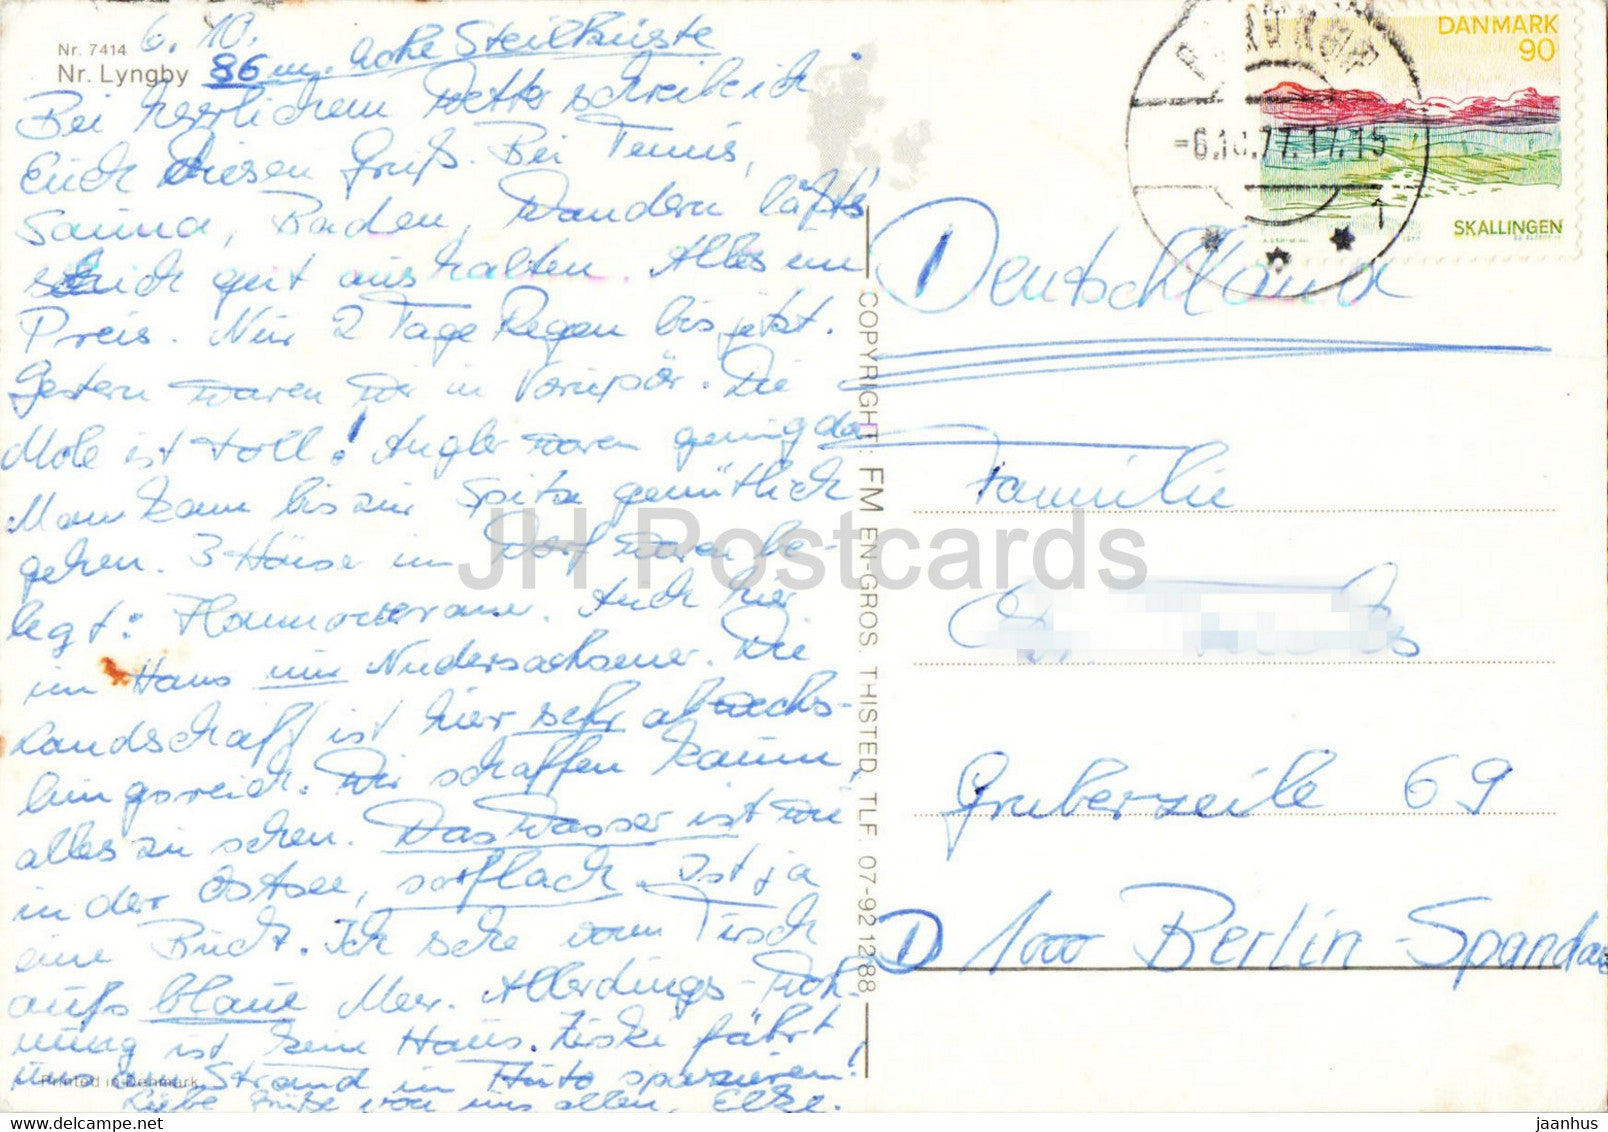 Nr. 7414
Nr. Lyngby
6. 10.
86 m. hohe Steilküste
Bei herrlichem Wetter schreibe ich
Euch diesen Gruß. Bei Tennis,
Sauna, Baden, Wandern läßt's
sich gut aushalten. Alles im
Preis. Nur 2 Tage Regen bis jetzt.
Gestern waren wir in Vorupör. Die
Mole ist toll! Angler waren genug da
Man kann bis zur Spitze gemütlich
gehen. 3 Häuse im Dorf waren be-
legt: Hannoveraner. Auch hier
im Haus nur Niedersachsener. Die
Landschaft ist hier sehr abwechs-
lungsreich. Wir schaffen kaum,
alles zu sehen. Das Wasser ist wie
in der Ostsee, so flach. Ist ja
eine Bucht. Ich sehe vom Tisch
aufs blaue Meer. Allerdings Woh-
nung ist kein Haus. fährt
uns am Strand im Auto spazieren!
Liebe Grüße von uns allen, Elke.
Printed in Denmark
COPYRIGHT: FM EN-GROS. THISTED. TLF. 07-92 12 88
DANMARK
90
SKALLINGEN
-6.10.77.17.15
1
Deutschland
Familie
Gruberzeile 69
D 1000 Berlin-Spandau
JH Postcards
jaanhus
www.delcampe.net